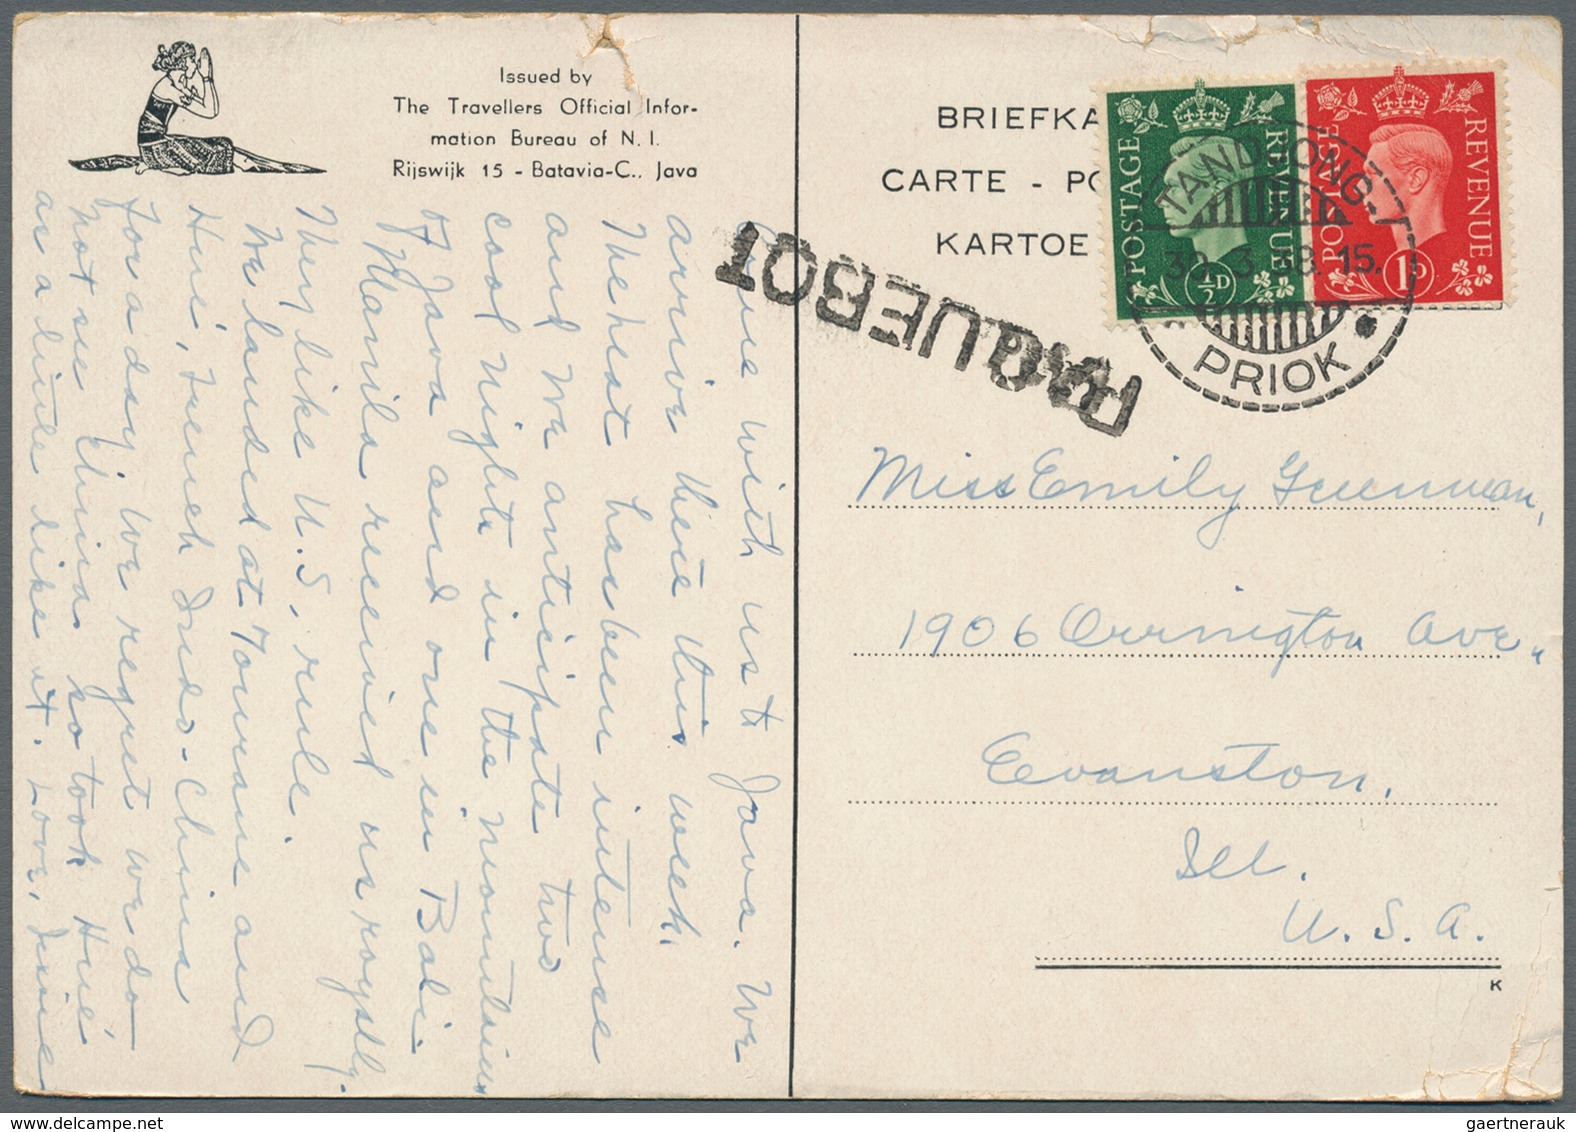 Issued by
The Travellers Official Infor-
mation Bureau of N. I.
Rijswijk 15 - Batavia-C., Java
Come with us to Java. We
arrive there this week.
The heat has been intense
and we anticipate two
cool nights in the mountains
of Java and one in Bali.
Manila received us royally.
They like U.S. rule.
We landed at Tourane and
Hué, French Indo-China
for a day. We regret we do
not see China so took Hué
as a little like it. Love,
BRIEFKA
CARTE - PO
KARTOE
POSTAGE
REVENUE
½D
POSTAGE
REVENUE
1D
TANDJONG
30.3.38.15.
PRIOK
PAQUEBOT
Miss Emily Greenman,
1906 Orrington Ave.,
Evanston,
Ill.
U.S.A.
K
gaertnerauk